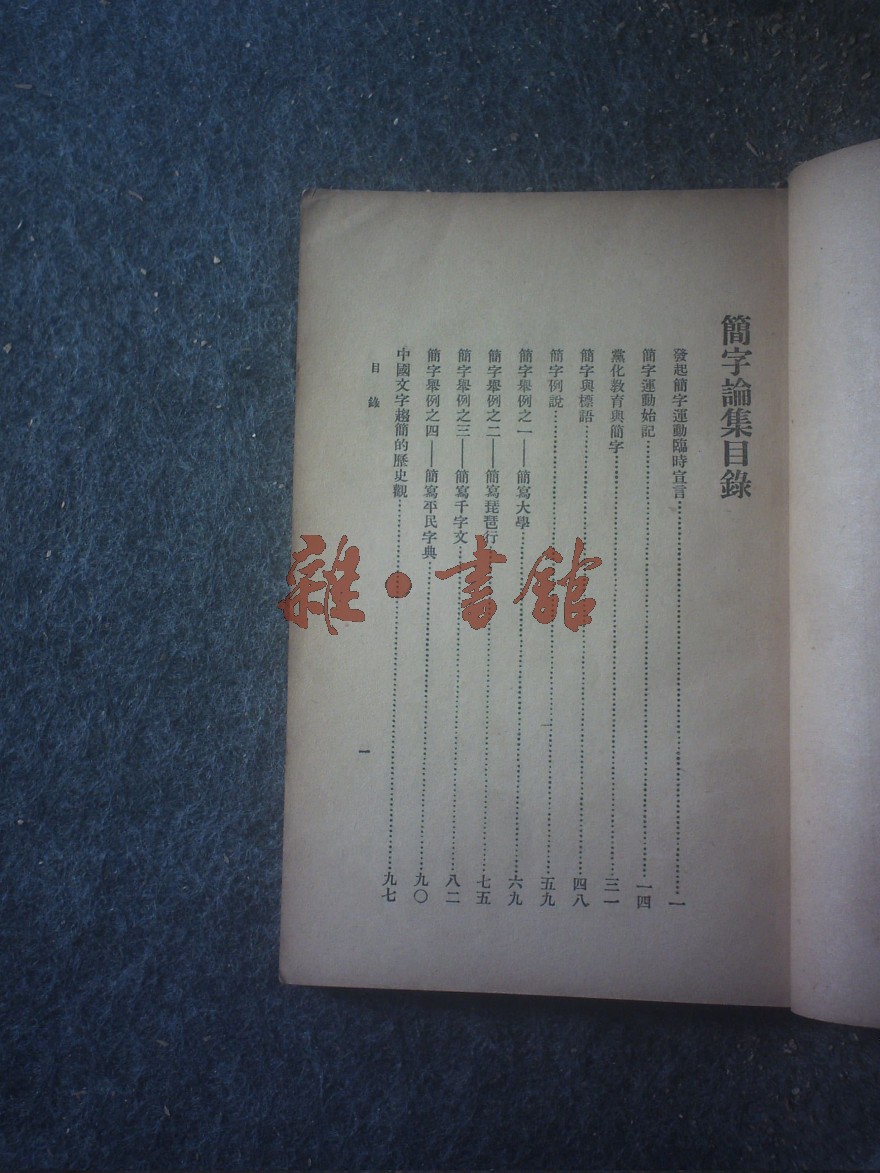 簡字論集目錄
發起簡字運動臨時宣言……一
簡字運動始記……一四
黨化教育與簡字……三一
簡字與標語……四八
簡字例說……五九
簡字舉例之一——簡寫大學……六九
簡字舉例之二——簡寫琵琶行……七五
簡字舉例之三——簡寫千字文……八二
簡字舉例之四——簡寫平民字典……九〇
中國文字趨簡的歷史觀……九七
目錄
一
雜·書館